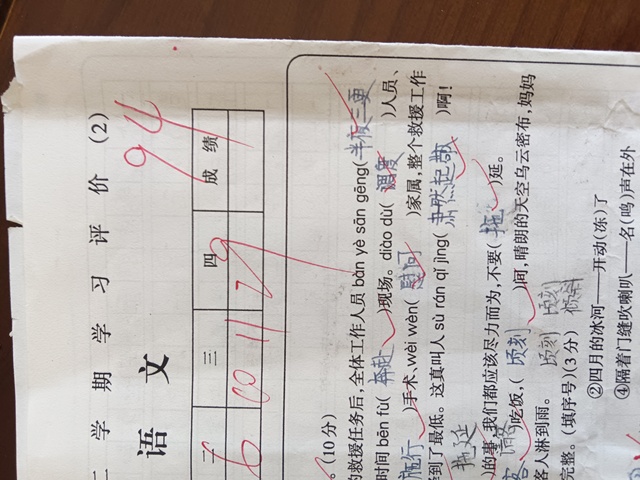 二学期学习评价(2)
语文
94
二 三 四 成绩
6 00 11 29
。(10分)
的救援任务后,全体工作人员bàn yè sān gēng(半夜三更
时间bēn fù(奔赴)现场。diào dù(调度)人员、
施行)手术、wèi wèn(慰问)家属,整个救援工作
到了最低。这真叫人sù rán qǐ jìng(肃然起敬)啊!
拖延
)的事,我们都应该尽力而为,不要(拖)延。
客)吃饭,(顷刻)间,晴朗的天空乌云密布,妈妈
客人淋到雨。 顷刻 顷刻 倾斜
完整。(填序号)(3分)
②四月的冰河——开动(冻)了
④隔着门缝吹喇叭——名(鸣)声在外